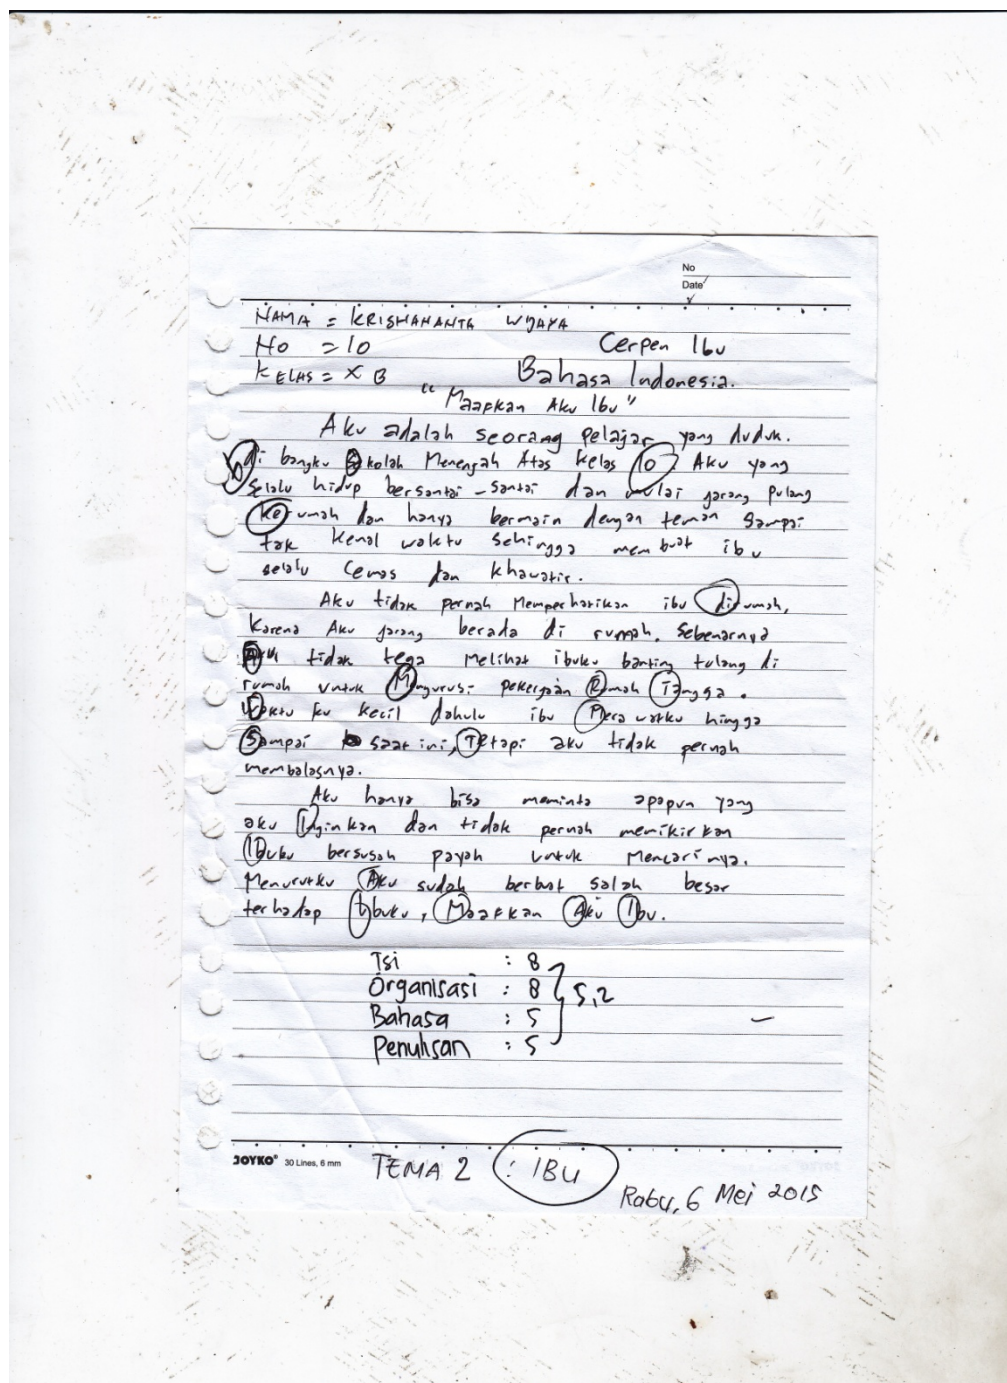 No
Date
NAMA = KRISHANANTA WIJAYA
NO = 10 Cerpen Ibu
KELAS = X B Bahasa Indonesia.
"Maapkan Aku Ibu"
Aku adalah seorang pelajar yang duduk.
di bangku Sekolah Menengah Atas kelas 10 Aku yang
selalu hidup bersantai-santai dan mulai jarang pulang
kerumah dan hanya bermain dengan teman sampai
tak kenal waktu sehingga membuat ibu
selalu cemas dan khawatir.
Aku tidak pernah memperhatikan ibu dirumah,
karena Aku jarang berada di rumah. Sebenarnya
Aku tidak tega melihat ibuku banting tulang di
rumah untuk Mengurusi pekerjaan Rumah Tangga.
Waktu ku kecil dahulu ibu Merawatku hingga
Sampai saat ini, Tetapi aku tidak pernah
membalasnya.
Aku hanya bisa meminta apapun yang
aku Inginkan dan tidak pernah memikirkan
Ibuku bersusah payah untuk Mencarinya.
Menurutku Aku sudah berbuat salah besar
terhadap Ibuku, Maapkan Aku Ibu.
Isi : 8
Organisasi : 8 5,2
Bahasa : 5
Penulisan : 5
JOYKO® 30 Lines, 6 mm TEMA 2 : IBU
Rabu, 6 Mei 2015